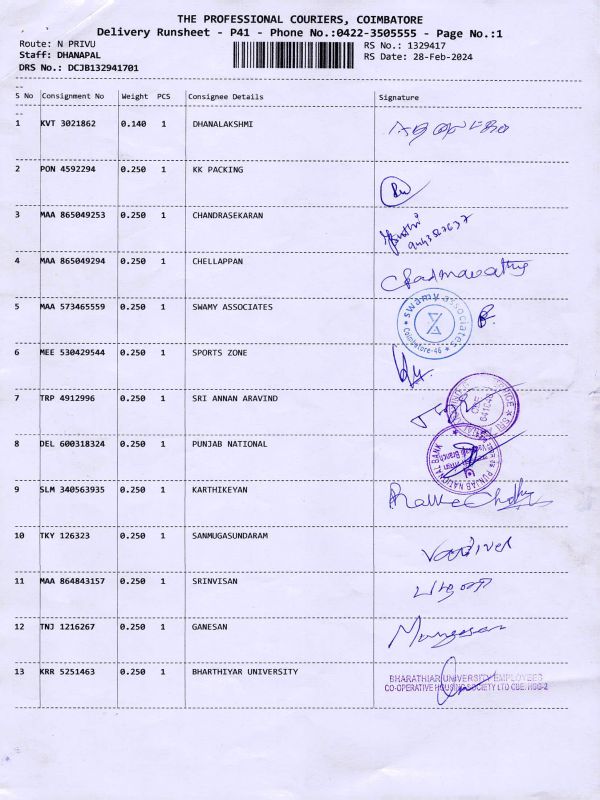 THE PROFESSIONAL COURIERS, COIMBATORE
Delivery Runsheet - P41 - Phone No.:0422-3505555 - Page No.:1
Route: N PRIVU RS No.: 1329417
Staff: DHANAPAL RS Date: 28-Feb-2024
DRS No.: DCJB132941701
S No Consignment No Weight PCS Consignee Details Signature
1 KVT 3021862 0.140 1 DHANALAKSHMI
2 PON 4592294 0.250 1 KK PACKING
3 MAA 865049253 0.250 1 CHANDRASEKARAN
4 MAA 865049294 0.250 1 CHELLAPPAN
5 MAA 573465559 0.250 1 SWAMY ASSOCIATES
swamy associates
Coimbatore-46
6 MEE 530429544 0.250 1 SPORTS ZONE
7 TRP 4912996 0.250 1 SRI ANNAN ARAVIND
8 DEL 600318324 0.250 1 PUNJAB NATIONAL
PUNJAB NATIONAL BANK
9 SLM 340563935 0.250 1 KARTHIKEYAN
10 TKY 126323 0.250 1 SANMUGASUNDARAM
11 MAA 864843157 0.250 1 SRINVISAN
12 TNJ 1216267 0.250 1 GANESAN
13 KRR 5251463 0.250 1 BHARTHIYAR UNIVERSITY
BHARATHIAR UNIVERSITY EMPLOYEES
CO-OPERATIVE HOUSING SOCIETY LTD CBE. HSG-2